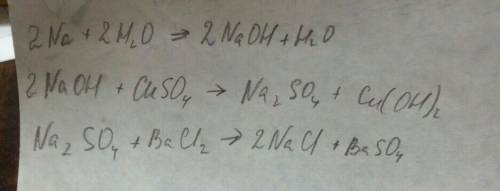 2Na + 2H₂O ⇒ 2NaOH + H₂O
2NaOH + CuSO₄ → Na₂SO₄ + Cu(OH)₂
Na₂SO₄ + BaCl₂ → 2NaCl + BaSO₄